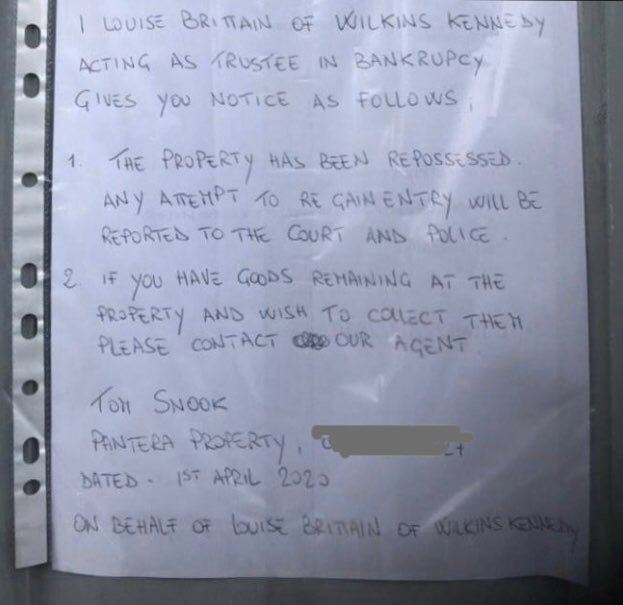 I LOUISE BRITTAIN OF WILKINS KENNEDY
ACTING AS TRUSTEE IN BANKRUPCY
GIVES YOU NOTICE AS FOLLOWS;
1. THE PROPERTY HAS BEEN REPOSSESSED.
ANY ATTEMPT TO RE GAIN ENTRY WILL BE
REPORTED TO THE COURT AND POLICE.
2. IF YOU HAVE GOODS REMAINING AT THE
PROPERTY AND WISH TO COLLECT THEM
PLEASE CONTACT OUR AGENT
TOM SNOOK
PANTERA PROPERTY,
DATED - 1ST APRIL 2020
ON BEHALF OF LOUISE BRITTAIN OF WILKINS KENNEDY